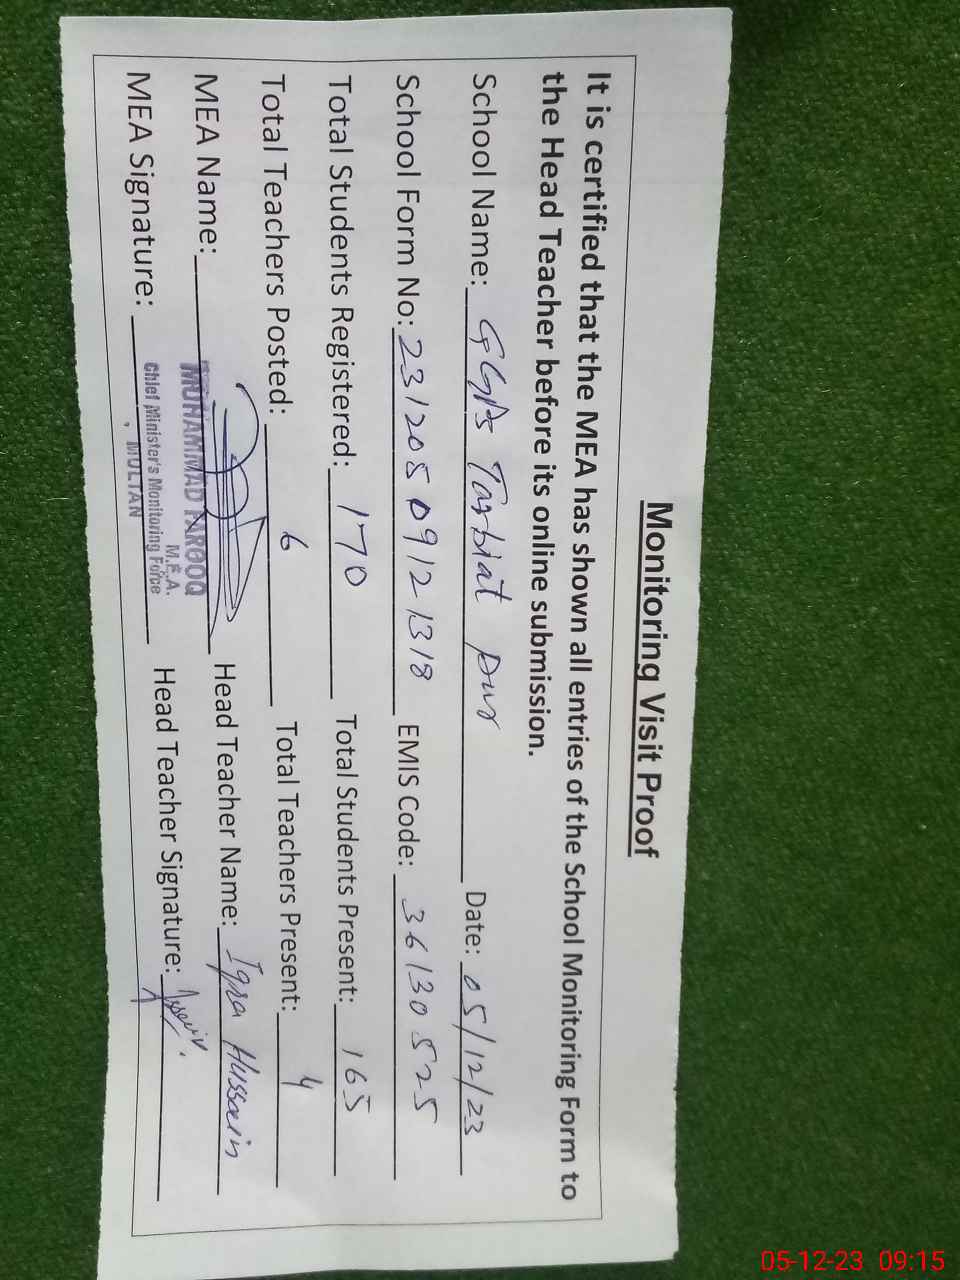 Monitoring Visit Proof
It is certified that the MEA has shown all entries of the School Monitoring Form to
the Head Teacher before its online submission.
School Name: GGPS Tarbiat pur Date: 05/12/23
School Form No: 23120509121318 EMIS Code: 36130525
Total Students Registered: 170 Total Students Present: 165
Total Teachers Posted: 6 Total Teachers Present: 4
MEA Name: MUHAMMAD FAROOQ Head Teacher Name: Iqra Hussain
M.E.A.
MEA Signature: Chief Minister's Monitoring Force Head Teacher Signature:
, MULTAN
05-12-23 09:15